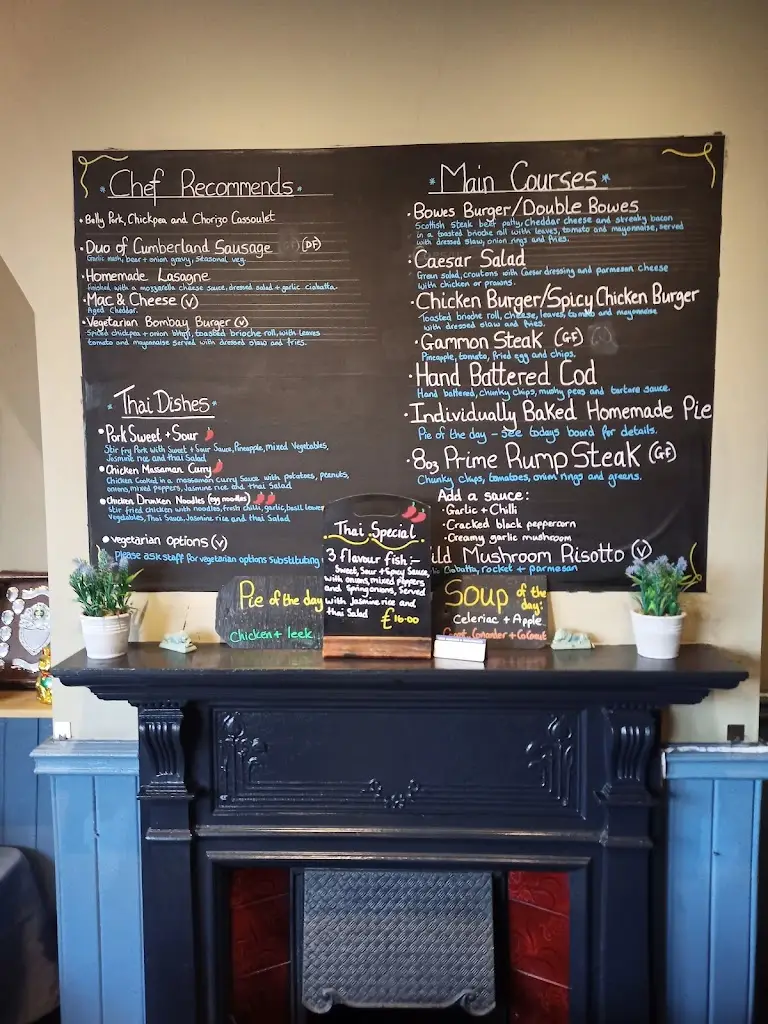 Chef Recommends
• Belly Pork, Chickpea and Chorizo Cassoulet
• Duo of Cumberland Sausage (DF)
Garlic mash, beer + onion gravy, seasonal veg.
• Homemade Lasagne
finished with a mozzarella cheese sauce, dressed salad + garlic ciabatta.
• Mac & Cheese (V)
Aged Cheddar.
• Vegetarian Bombay Burger (V)
Spiced chickpea + onion bhaji, toasted brioche roll, with leaves
tomato and mayonnaise served with dressed slaw and fries.
Thai Dishes
• Pork Sweet + Sour
Stir fry Pork with Sweet + Sour Sauce, Pineapple, mixed Vegetables,
Jasmine rice and thai Salad
• Chicken Massaman Curry
Chicken Cooked in a massaman curry Sauce with potatoes, peanuts,
onions, mixed peppers, Jasmine rice and thai Salad
• Chicken Drunken Noodles (egg noodles)
Stir fried chicken with noodles, fresh chilli, garlic, basil leaves
Vegetables, Thai Sauce, Jasmine rice and thai Salad.
• vegetarian options (V)
Please ask staff for vegetarian options Substituting
Main Courses
• Bowes Burger/Double Bowes
Scottish Steak beef patty, cheddar cheese and streaky bacon
in a toasted brioche roll with leaves, tomato and mayonnaise, served
with dressed slaw, onion rings and fries.
• Caesar Salad
Green salad, croutons with Caesar dressing and parmesan cheese
with chicken or prawns.
• Chicken Burger/Spicy Chicken Burger
Toasted brioche roll, cheese, leaves, tomato and mayonnaise
with dressed slaw and fries.
• Gammon Steak (GF)
Pineapple, tomato, fried egg and chips.
• Hand Battered Cod
Hand battered, chunky chips, mushy peas and tartare sauce.
• Individually Baked Homemade Pie
Pie of the day – see todays board for details.
• 8oz Prime Rump Steak (GF)
Chunky chips, tomatoes, onion rings and greens.
Add a sauce:
• Garlic + Chilli
• Cracked black peppercorn
• Creamy garlic mushroom
Mushroom Risotto (V)
Ciabatta, rocket + parmesan
Pie of the day
Chicken + leek
Thai Special
3 flavour fish:–
Sweet, Sour + Spicy Sauce,
with onions, mixed peppers
and Spring onions, Served
with Jasmine rice and
thai Salad £16.00
Soup of the day:
Celeriac + Apple
Carrot, Coriander + Coconut